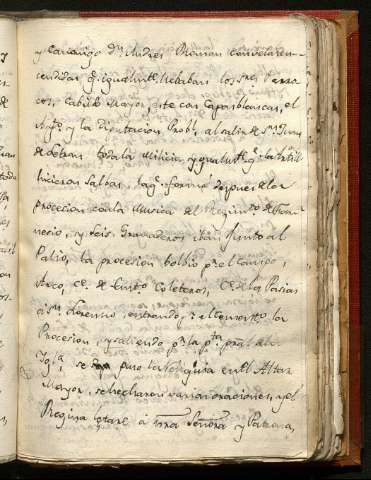 y Canonigo Dn. Andres Roman con velas en-
cendidas, è igualmte. llebaban los Sres. Parra
cos, Cabildo mayor, este con Capas blancas, el
Aytº. y la Diputacion Probl. al salir de Sn. Juan
de Letran toda la Milicia, y qualmte. qe. la Artill.
hicieron Salbas, la qe. formó despues de la
procesion con la Musica del Regimto. de
necio, y seis Granaderos iban junto al
Palio, la procesion bolbió pr. el
Arco, Ce. de Coleteros, Ce. de las Pasias
a Sn. Lorenzo, entrando, en el Convto. la
Procesion, y saliendo pr. la pta. pral. de la
Iglª. se puso la en el Altar
Mayor, se hecharon varias oraciones, y el
Regina letare à ntra Señora y Patrona,